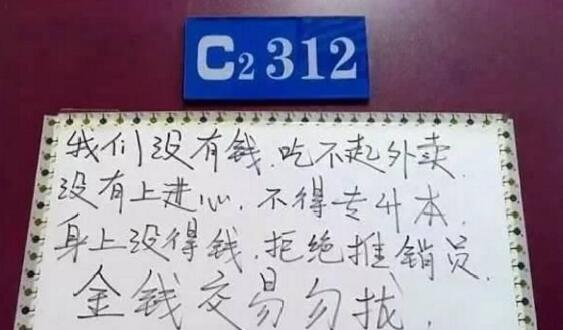 C2 312
我们没有钱.吃不起外卖.
没有上进心.不得专升本.
身上没得钱.拒绝推销员.
金钱交易勿扰.